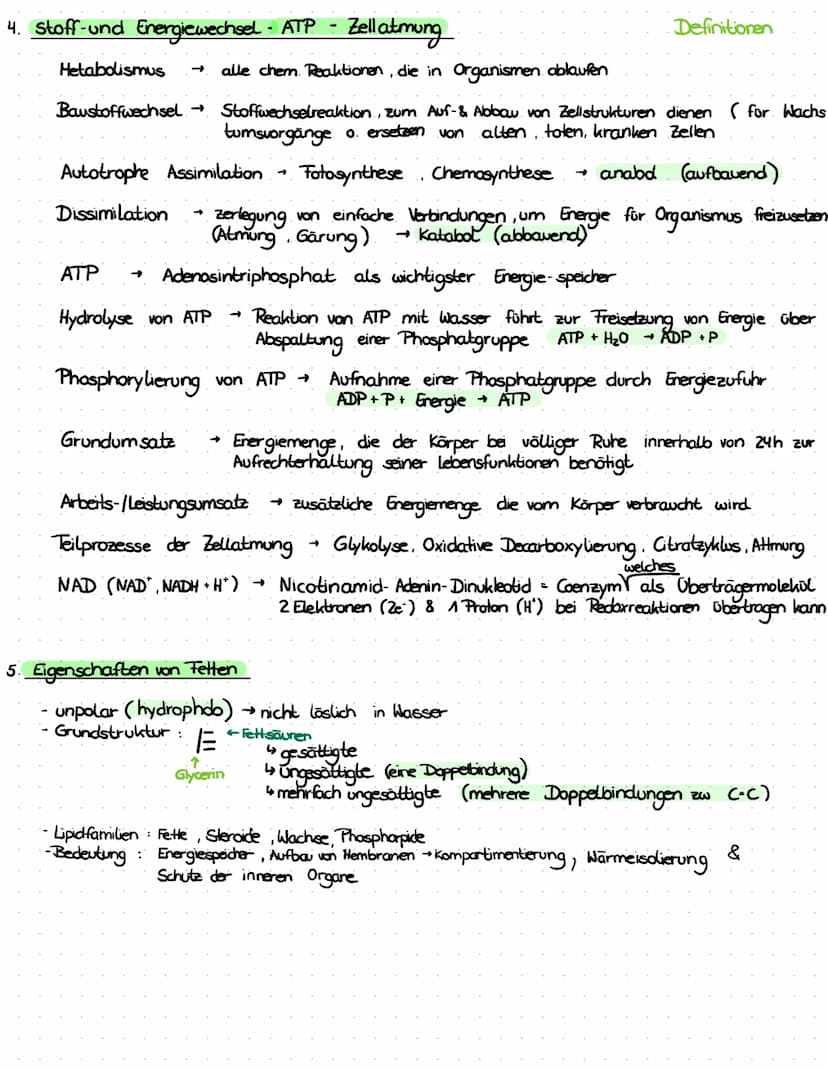 4. Stoff-und Energiewechsel - ATP - Zellatmung Definitionen
Metabolismus → alle chem. Reaktionen, die in Organismen ablaufen
Baustoffwechsel → Stoffwechselreaktion, zum Auf-& Abbau von Zellstrukturen dienen ( für Wachs
tumsvorgänge o. ersetzen von alten, toten, kranken Zellen
Autotrophe Assimilation → Fotosynthese, Chemosynthese → anabol (aufbauend)
Dissimilation → zerlegung von einfache Verbindungen, um Energie für Organismus freizusetzen
(Atmung, Gärung) → Katabol (abbauend)
ATP → Adenosintriphosphat als wichtigster Energie-speicher
Hydrolyse von ATP → Reaktion von ATP mit Wasser führt zur Freisetzung von Energie über
Abspaltung einer Phosphatgruppe ATP + H₂O → ADP + P
Phosphorylierung von ATP → Aufnahme einer Phosphatgruppe durch Energiezufuhr
ADP + P + Energie → ATP
Grundumsatz → Energiemenge, die der Körper bei völliger Ruhe innerhalb von 24h zur
Aufrechterhaltung seiner Lebensfunktionen benötigt
Arbeits-/Leistungsumsatz → zusätzliche Energiemenge die vom Körper verbraucht wird
Teilprozesse der Zellatmung → Glykolyse, Oxidative Decarboxylierung, Citratzyklus, Atmung
welches
NAD (NAD⁺, NADH + H⁺) → Nicotinamid-Adenin-Dinukleotid = Coenzym als Überträgermolekül
2 Elektronen (2e⁻) & 1 Proton (H⁺) bei Redoxreaktionen übertragen kann
5. Eigenschaften von Fetten
- unpolar (hydrophob) → nicht löslich in Wasser
- Grundstruktur : ← Fettsäuren
↳ gesättigte
↑ Glycerin ↳ ungesättigte (eine Doppelbindung)
↳ mehrfach ungesättigte (mehrere Doppelbindungen zw C-C)
- Lipidfamilien : Fette, Steroide, Wachse, Phospholipide
- Bedeutung : Energiespeicher, Aufbau von Membranen → Kompartimentierung, Wärmeisolierung &
Schutz der inneren Organe